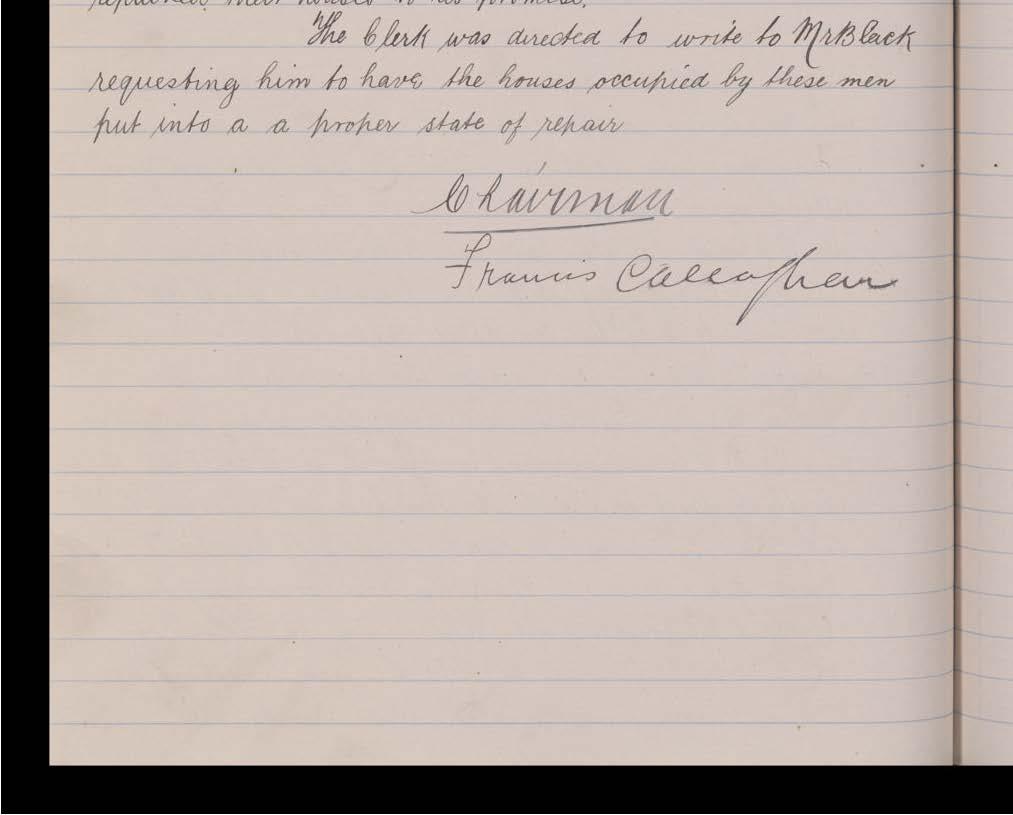 their houses
The Clerk was directed to write to Mr Black
requesting him to have the houses occupied by these men
put into a a proper state of repair
Chairman
Francis Callaghan